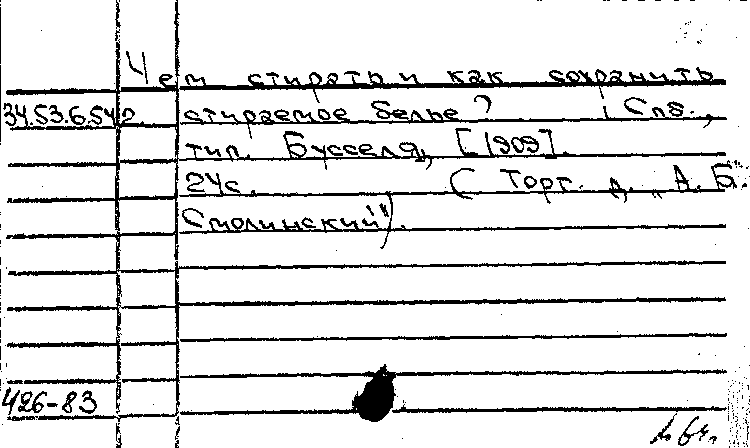 Чем стирать и как сохранить
34.53.6.542. стираемое белье? Спб.,
тип. Бусселя, [1909].
24с. (Торг. д. "А. Б.
Смолинский").
426-83